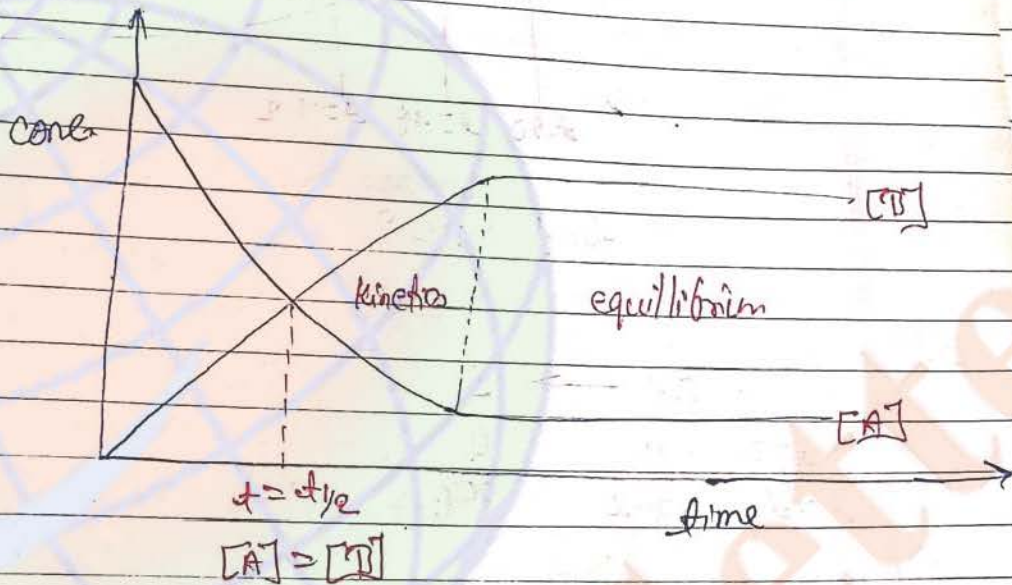 conc
[B]
kinetics
equillibrium
[A]
t = t1/2
time
[A] = [B]